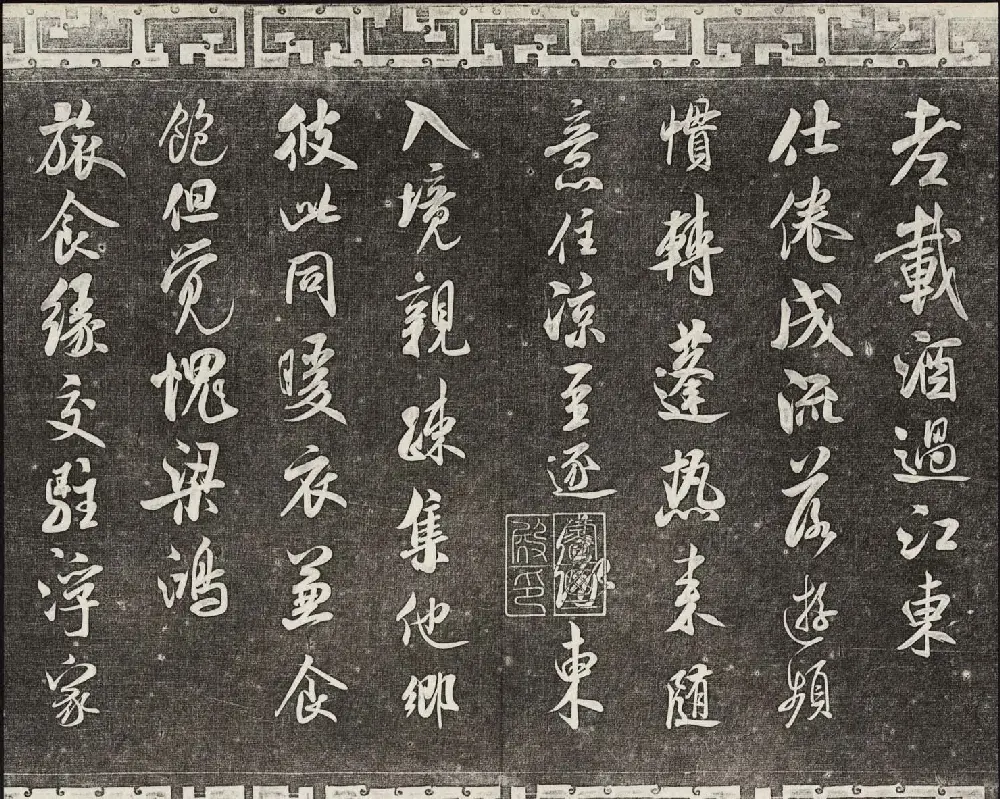 老載酒過江東
仕倦成流落游頻
慣轉蓬热来随
意住涼至逐東
入境親疎集他鄉
彼此同暖衣兼食
飽但觉愧梁鴻
旅食緣交駐浮家